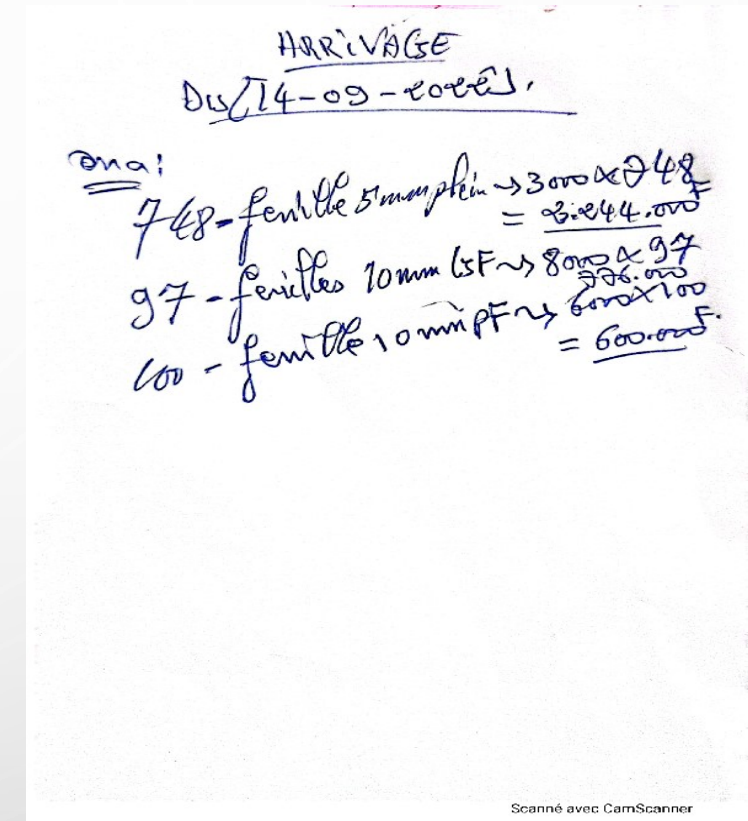 ARRIVAGE
DU [14-09-2022].
ona:
748-feuille 5mm plein → 3000 x 748
= 2.244.000F
97-feuilles 10mm GF → 8000 x 97
776.000
100-feuille 10mm PF → 6000 x 100
= 600.000F.
Scanné avec CamScanner